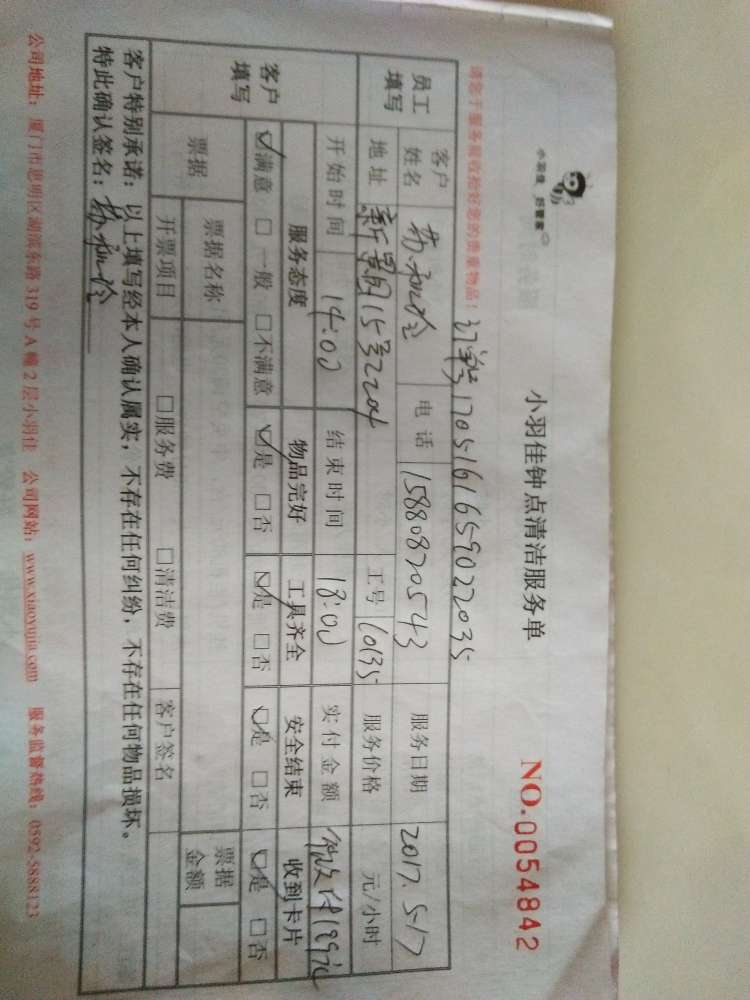 小羽佳 好管家
小羽佳钟点清洁服务单
NO.0054842
请您于服务前收捡好您的贵重物品!
订单号1705161659022035
员工填写 客户姓名 电话 15880820543 服务日期 2017.5-17
地址 新景园15号2204 工号 60135 服务价格 元/小时
开始时间 14:00 结束时间 18:00 实付金额 微支付189元
客户填写 服务态度 物品完好 工具齐全 安全结束 收到卡片
☑满意 □一般 □不满意 ☑是 □否 ☑是 □否 ☑是 □否 ☑是 □否
票据 票据名称 票据金额
开票项目 □服务费 □清洁费 客户签名
客户特别承诺:以上填写经本人确认属实,不存在任何纠纷,不存在任何物品损坏。
特此确认签名:
公司地址:厦门市思明区湖滨东路319号A幢2层小羽佳 公司网站:www.xiaoyujia.com 服务监督热线:0592-5888123